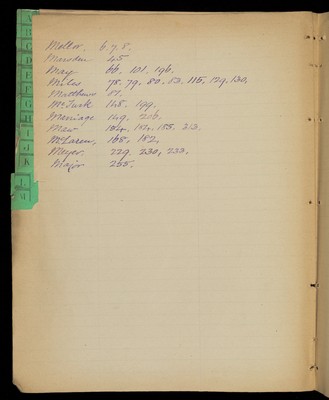 Mellor. 6.7.8.
Marsden 45
May 66. 101. 196.
Miles 78. 79. 80. 83. 115. 129. 130.
Matthews 81.
McTurk 148. 199.
Marriage 149. 216.
Maw 184. 155. 213.
McLaren, 168. 182.
Mayer. 229. 230, 233.
Major 255.
B
C
D
E
F
G
H
I
J
K
L
M